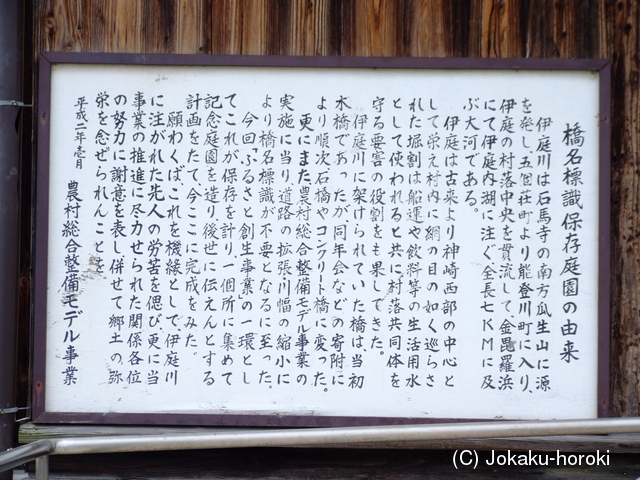 橋名標識保存庭園の由来
伊庭川は石馬寺の南方瓜生山に源
を発し、五個荘町より能登川町に入り、
伊庭の村落中央を貫流して、金毘羅浜
にて伊庭内湖に注ぐ全長七KMに及
ぶ大河である。
伊庭は古来より神崎西部の中心と
して栄え村内に網の目の如く巡らさ
れた堀割は船運や飲料等の生活用水
として使われると共に村落共同体を
守る要害の役割をも果してきた。
伊庭川に架けられていた橋は、当初
木橋であったが同年会などの寄附に
より順次石橋やコンクリート橋に変った。
更にまた農村総合整備モデル事業の
実施に当り道路の拡張川幅の縮小に
より橋名標識が不要となるに至った。
今回「ふるさと創生事業」の一環とし
てこれが保存を計り、一個所に集めて
記念庭園を造り、後世に伝えんとする
計画をたて、今ここに完成をみた。
願わくばこれを機縁として、伊庭川
に注がれた先人の労苦を偲び、更に当
事業の推進に尽力せられた関係各位
の努力に謝意を表し併せて郷土の弥
栄を念ぜられんことを
平成二年壱月
農村総合整備モデル事業
(C) Jokaku-horoki